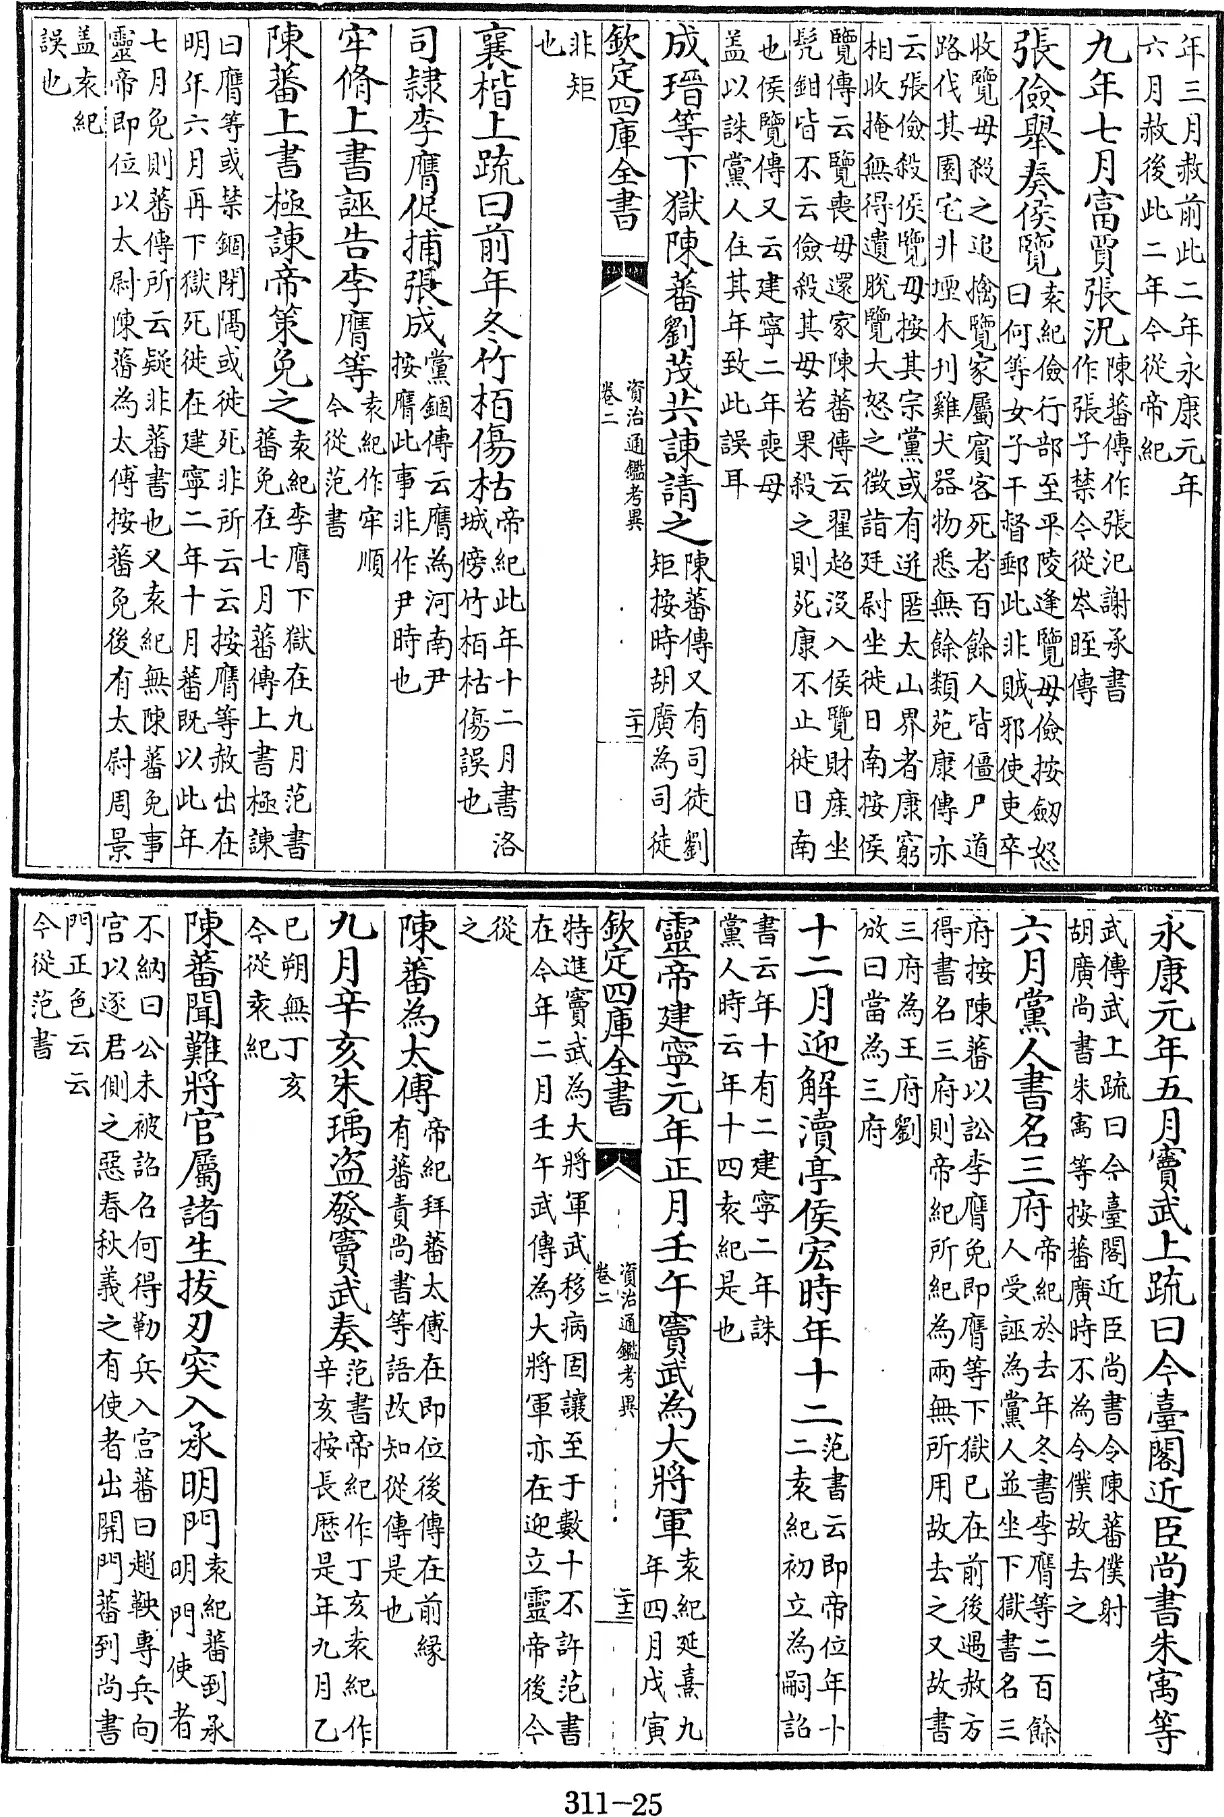 年三月赦前此二年永康元年
六月赦後此二年今從帝紀
九年七月富賈張況陳蕃傳作張汜謝承書
作張子禁今從岑晊傳
張儉舉奏侯覽袁紀儉行部至平陵逢覽母儉按劒怒
曰何等女子干督郵此非賊邪使吏卒
收覽母殺之追擒覽家屬賓客死者百餘人皆僵尸道
路伐其園宅井堙木刋雞犬器物悉無餘類苑康傳亦
云張儉殺侯覽母按其宗黨或有迸匿太山界者康窮
相收掩無得遺脫覽大怒之徵詣廷尉坐徙日南按侯
覽傳云覽喪母還家陳蕃傳云翟超沒入侯覽財産坐
髠鉗皆不云儉殺其母若果殺之則苑康不止徙日南
也侯覽傳又云建寧二年喪母
蓋以誅黨人在其年致此誤耳
成瑨等下獄陳蕃劉茂共諫請之陳蕃傳又有司徒劉
矩按時胡廣為司徒
欽定四庫全書
資治通鑑考異
卷二
二十一
非矩
也
襄楷上疏曰前年冬竹栢傷枯帝紀此年十二月書洛
城傍竹栢枯傷誤也
司隷李膺促捕張成黨錮傳云膺為河南尹
按膺此事非作尹時也
牢脩上書誣告李膺等袁紀作牢順
今從范書
陳蕃上書極諫帝策免之袁紀李膺下獄在九月范書
蕃免在七月蕃傳上書極諫
曰膺等或禁錮閉隔或徙死非所云云按膺等赦出在
明年六月再下獄死徙在建寧二年十月蕃既以此年
七月免則蕃傳所云疑非蕃書也又袁紀無陳蕃免事
靈帝即位以太尉陳蕃為太傅按蕃免後有太尉周景
蓋袁紀
誤也
永康元年五月竇武上疏曰今臺閣近臣尚書朱寓等
武傳武上疏曰今臺閣近臣尚書令陳蕃僕射
胡廣尚書朱寓等按蕃廣時不為令僕故去之
六月黨人書名三府帝紀於去年冬書李膺等二百餘
人受誣為黨人並坐下獄書名三
府按陳蕃以訟李膺免即膺等下獄已在前後遇赦方
得書名三府則帝紀所紀為兩無所用故去之又故書
三府為王府劉
放曰當為三府
十二月迎解瀆亭侯宏時年十二范書云即帝位年十
二袁紀初立為嗣詔
書云年十有二建寧二年誅
黨人時云年十四袁紀是也
靈帝建寧元年正月壬午竇武為大將軍袁紀延熹九
年四月戊寅
欽定四庫全書
資治通鑑考異
卷二
二十二
特進竇武為大將軍武移病固讓至于數十不許范書
在今年二月壬午武傳為大將軍亦在迎立靈帝後今
從
之
陳蕃為太傅帝紀拜蕃太傅在即位後傳在前緣
有蕃責尚書等語故知從傳是也
九月辛亥朱瑀盜發竇武奏范書帝紀作丁亥袁紀作
辛亥按長歷是年九月乙
巳朔無丁亥
今從袁紀
陳蕃聞難將官屬諸生拔刃突入承明門袁紀蕃到承
明門使者
不納曰公未被詔召何得勒兵入宫蕃曰趙鞅專兵向
宫以逐君側之惡春秋義之有使者出開門蕃到尚書
門正色云云
今從范書
311-25